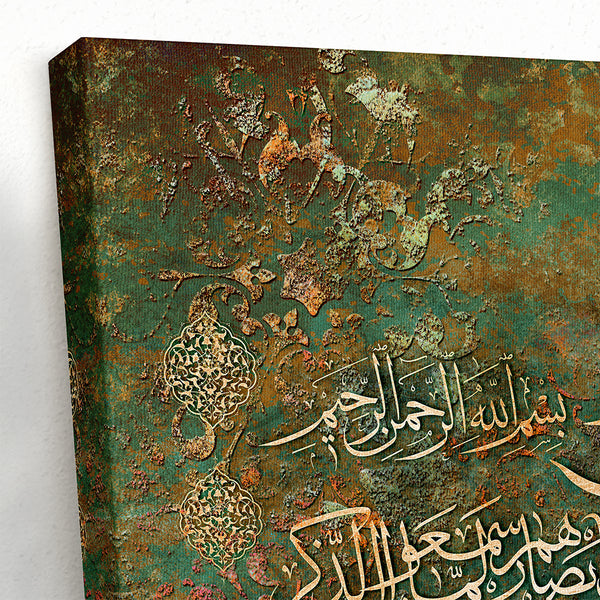 بِسْمِ اللَّهِ الرَّحْمَنِ الرَّحِيمِ
بصارهم لما سمعوا الذكر